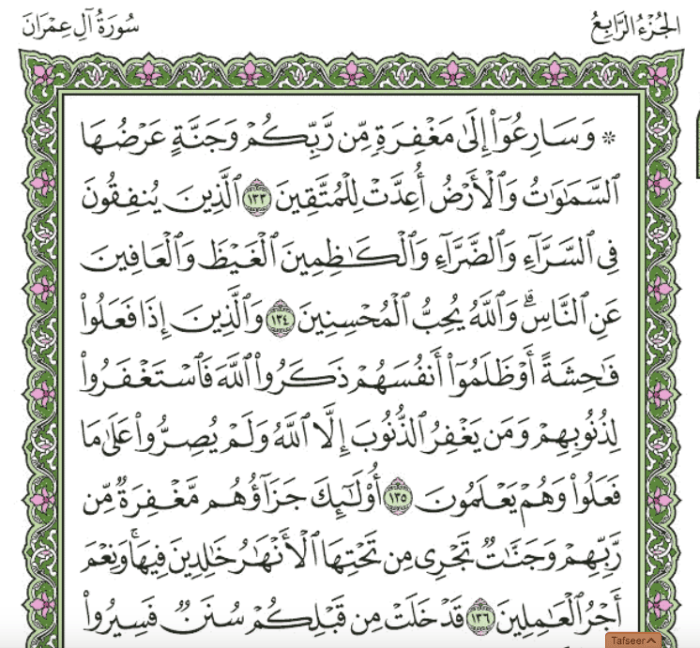 الجُزْءُ الرَّابِعُ
سُورَةُ آلِ عِمْرَانَ
۞ وَسَارِعُوٓاْ إِلَىٰ مَغۡفِرَةٖ مِّن رَّبِّكُمۡ وَجَنَّةٍ عَرۡضُهَا
ٱلسَّمَٰوَٰتُ وَٱلۡأَرۡضُ أُعِدَّتۡ لِلۡمُتَّقِينَ ١٣٣ ٱلَّذِينَ يُنفِقُونَ
فِي ٱلسَّرَّآءِ وَٱلضَّرَّآءِ وَٱلۡكَٰظِمِينَ ٱلۡغَيۡظَ وَٱلۡعَافِينَ
عَنِ ٱلنَّاسِۗ وَٱللَّهُ يُحِبُّ ٱلۡمُحۡسِنِينَ ١٣٤ وَٱلَّذِينَ إِذَا فَعَلُواْ
فَٰحِشَةً أَوۡ ظَلَمُوٓاْ أَنفُسَهُمۡ ذَكَرُواْ ٱللَّهَ فَٱسۡتَغۡفَرُواْ
لِذُنُوبِهِمۡ وَمَن يَغۡفِرُ ٱلذُّنُوبَ إِلَّا ٱللَّهُ وَلَمۡ يُصِرُّواْ عَلَىٰ مَا
فَعَلُواْ وَهُمۡ يَعۡلَمُونَ ١٣٥ أُوْلَٰٓئِكَ جَزَآؤُهُم مَّغۡفِرَةٞ مِّن
رَّبِّهِمۡ وَجَنَّٰتٞ تَجۡرِي مِن تَحۡتِهَا ٱلۡأَنۡهَٰرُ خَٰلِدِينَ فِيهَاۚ وَنِعۡمَ
أَجۡرُ ٱلۡعَٰمِلِينَ ١٣٦ قَدۡ خَلَتۡ مِن قَبۡلِكُمۡ سُنَنٞ فَسِيرُواْ
Tafseer